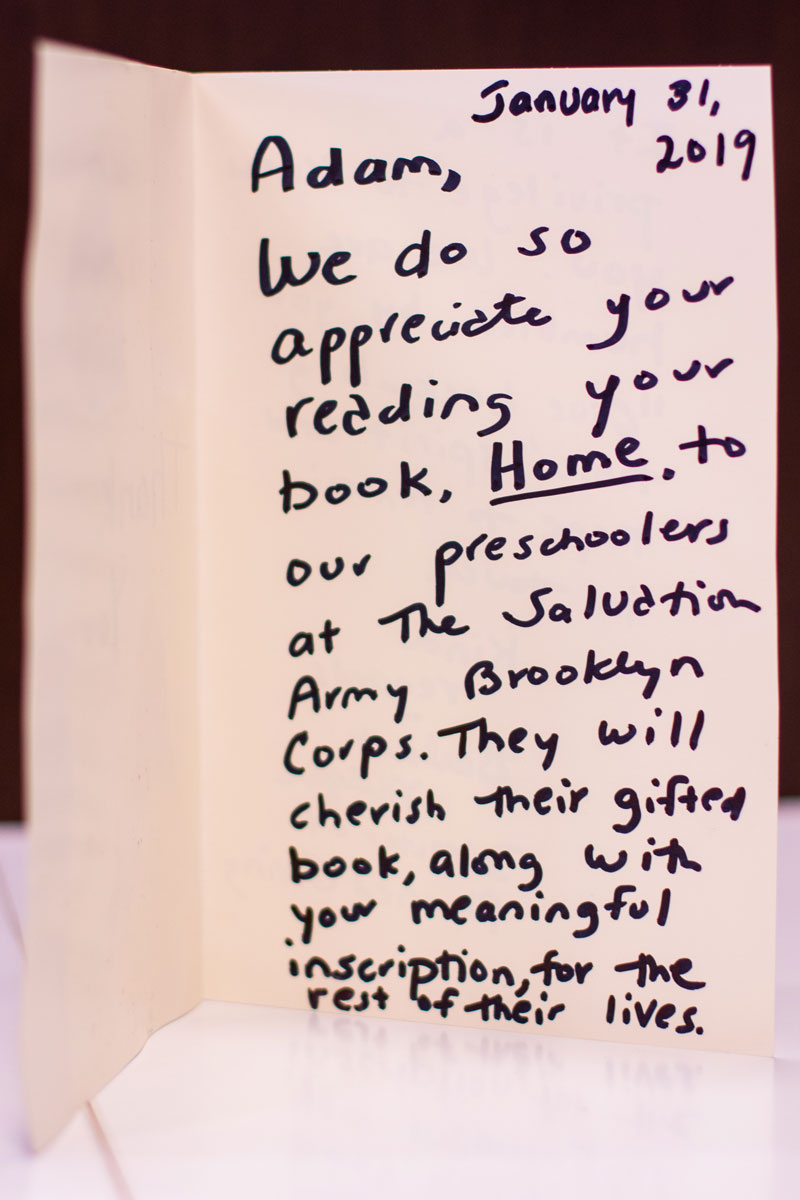 January 31,
2019
Adam,
We do so
appreciate your
reading your
book, Home, to
our preschoolers
at The Salvation
Army Brooklyn
Corps. They will
cherish their gifted
book, along with
your meaningful
inscription, for the
rest of their lives.